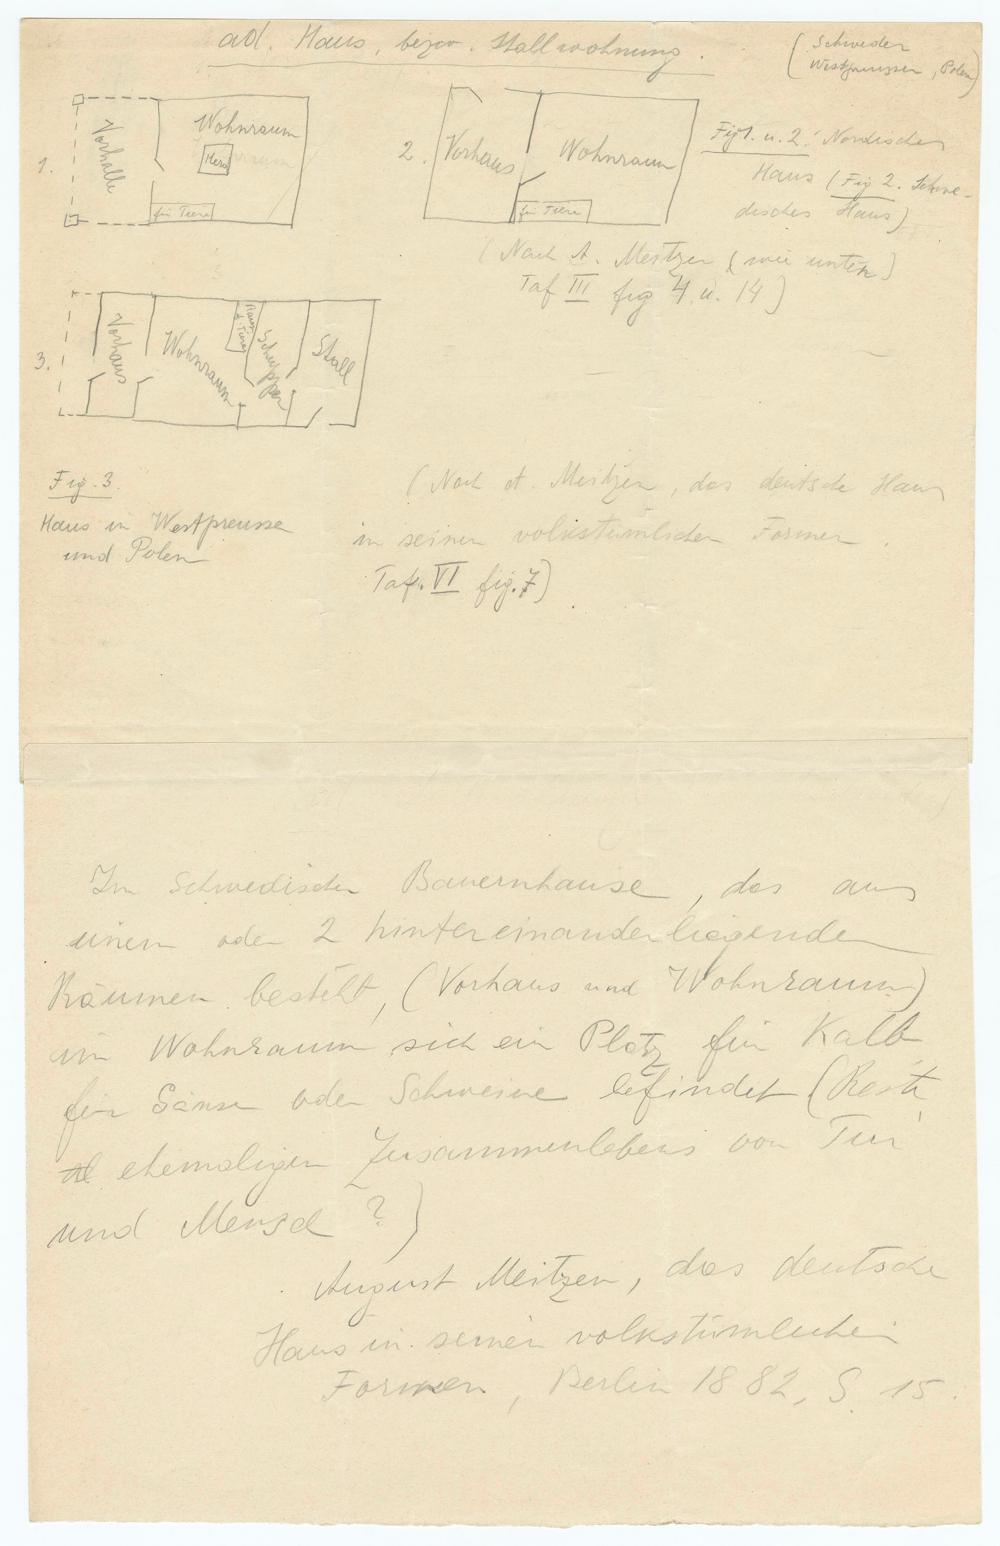 ad. Haus, bezw. Stallwohnung.
(Schweden
Westpreussen, Polen)
1.
Vorhalle
Wohnraum
Herd
für Tiere
2.
Vorhaus
Wohnraum
für Tiere
Fig 1. u. 2: Nordisches
Haus (Fig 2. Schwe-
disches Haus)
(Nach A. Meitzen (wie unten)
Taf III fig 4 u. 14)
3.
Vorhaus
Wohnraum
Raum
f. Tiere
Schuppen
Stall
Fig. 3.
Haus in Westpreusse
und Polen
(Nach A. Meitzen, das deutsche Haus
in seinen volkstümlichen Formen.
Taf. VI fig. 7)
Im Schwedischen Bauernhause, das aus
einem oder 2 hintereinanderliegenden
Räumen besteht, (Vorhaus und Wohnraum)
im Wohnraum sich ein Platz für Kalb
für Gänse oder Schweine befindet (Rest
ehemaligen Zusammenlebens von Tier
und Mensch ?)
August Meitzen, das deutsche
Haus in seinen volkstümlichen
Formen, Berlin 1882, S. 15.